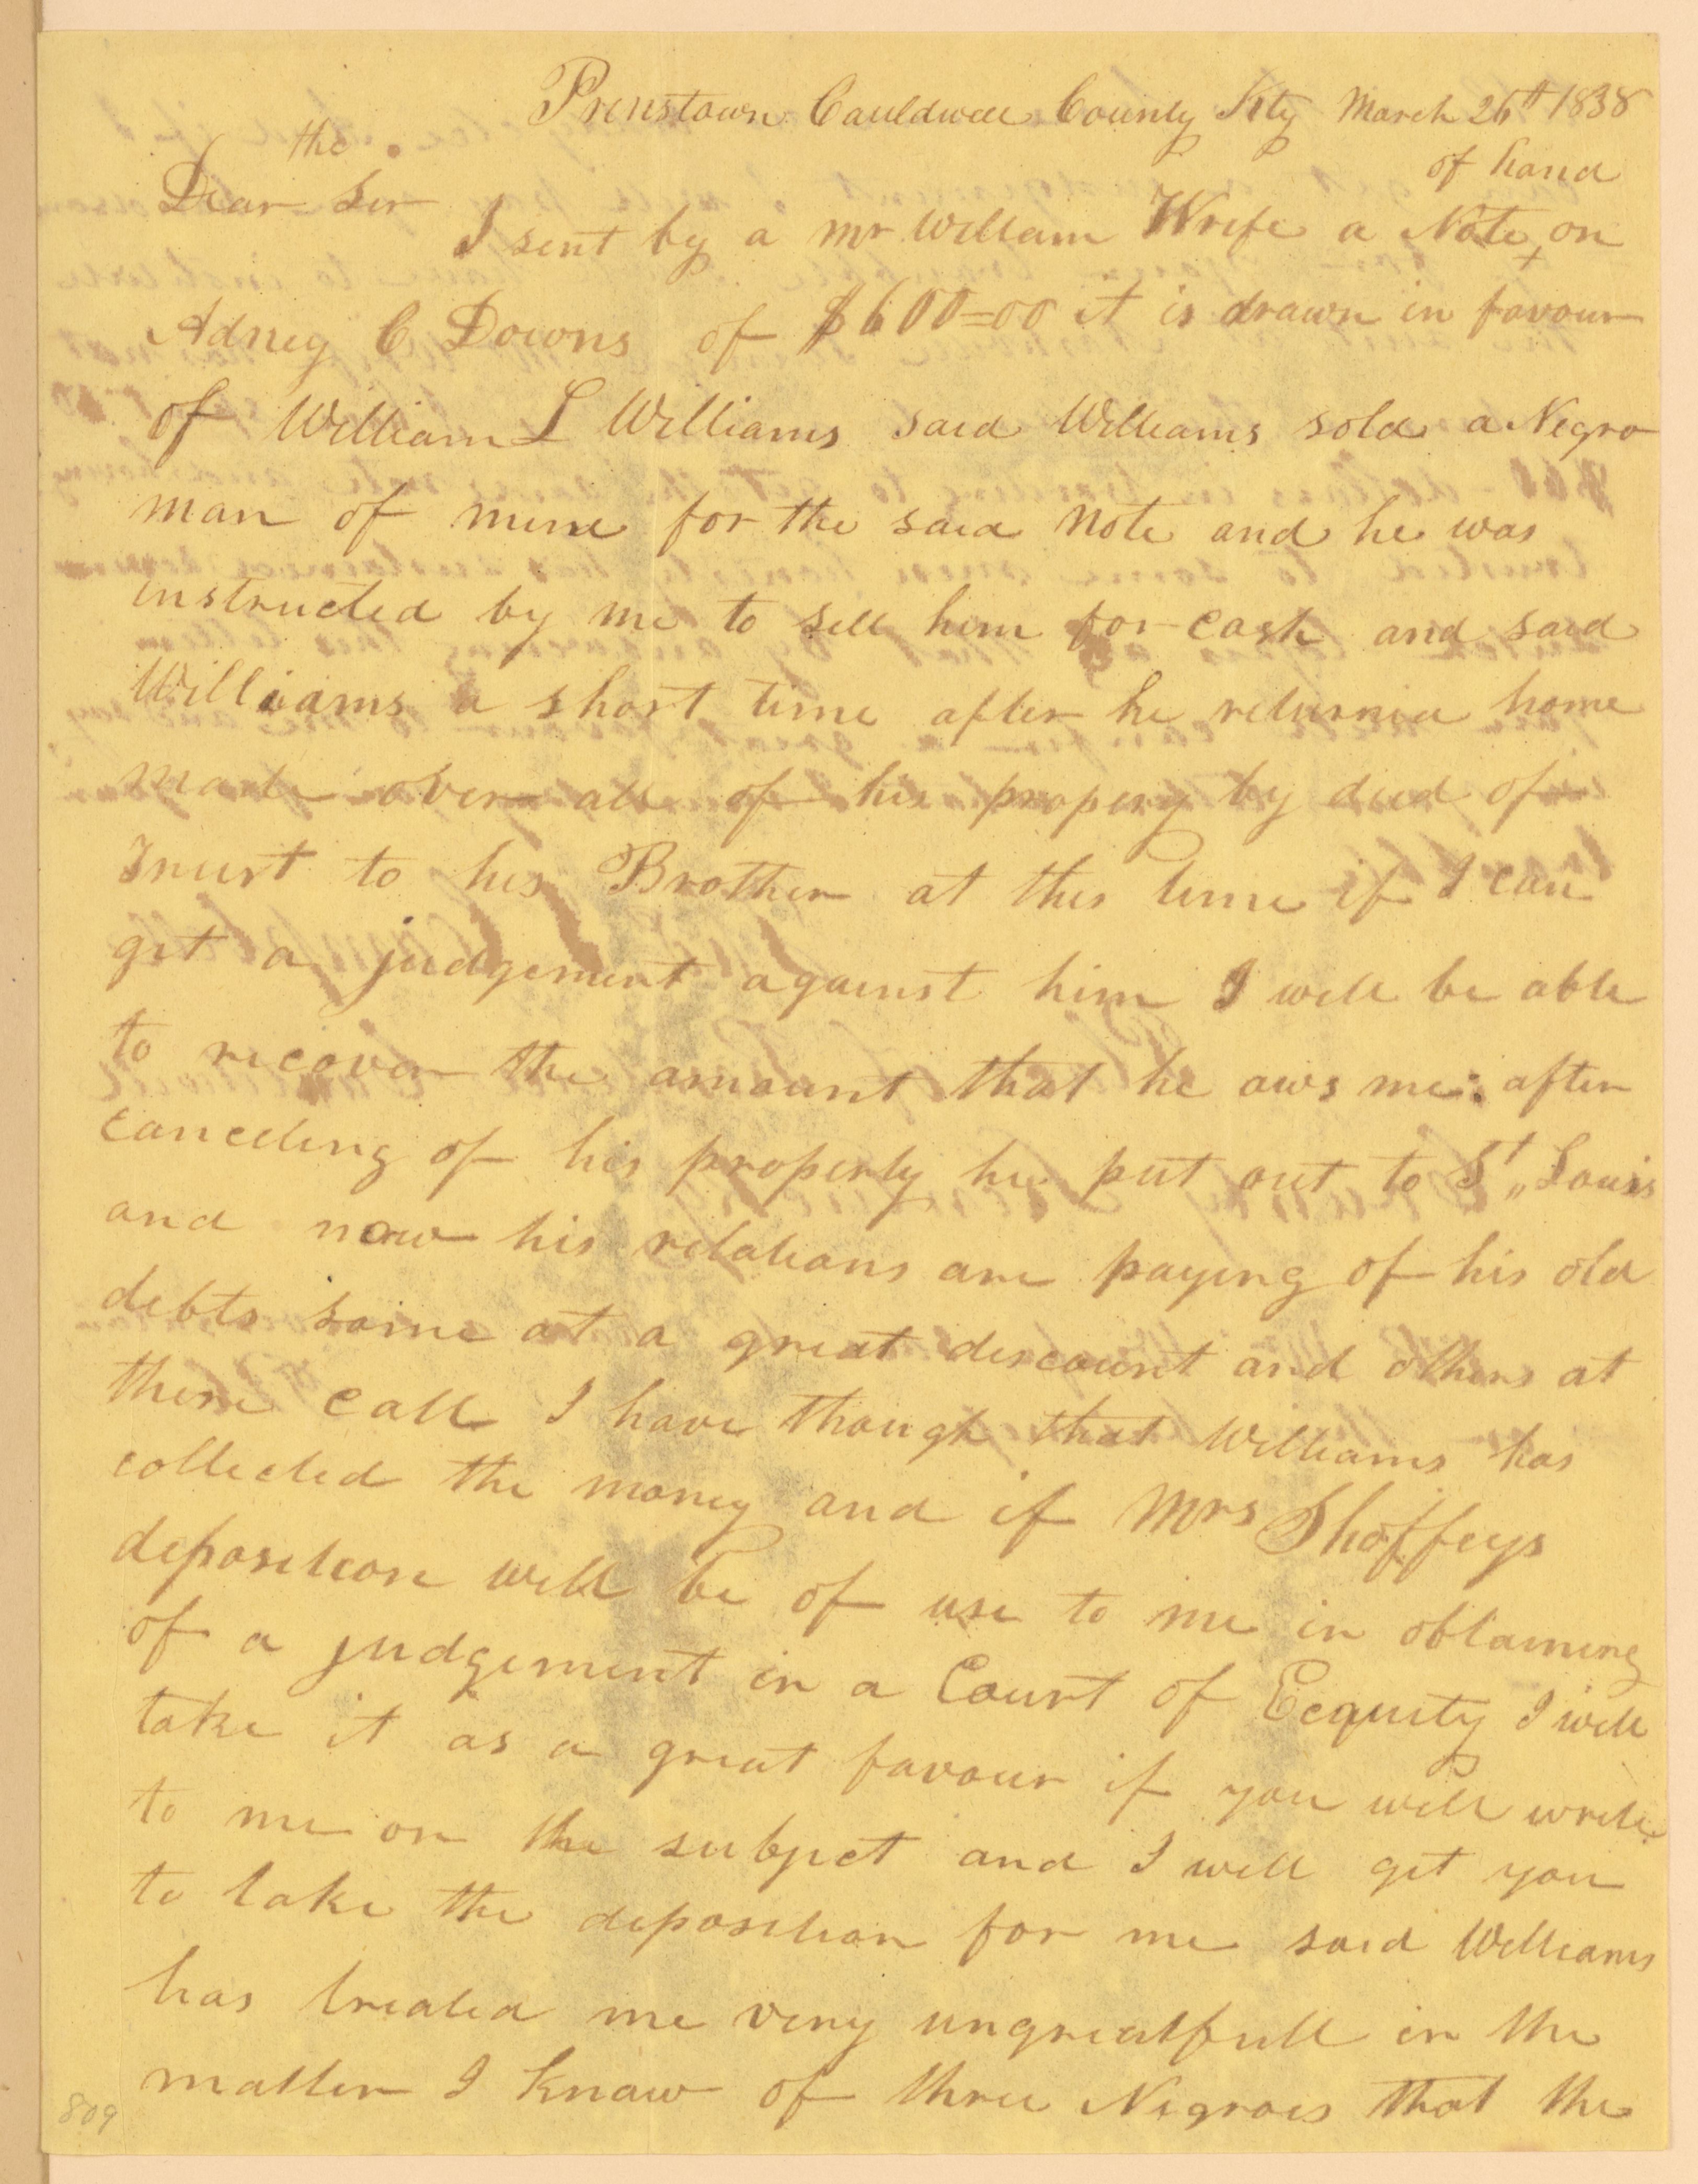 Prinstown Cauldwell County Kty March 26th 1838
the
Dear Sir
of hand
I sent by a mr William Wrife a Note on
Adney C Downs of $600=00 it is drawn in favour
of William L Williams said Williams sold a Negro
man of mine for the said Note and he was
instructed by me to sell him for cash and said
Williams a short time after he returned home
made over all of his propery by deed of
Trust to his Brother at this time if I can
get a judgement against him I will be able
to recover the amount that he ows me: after
canceling of his property he put out to St, Louis
and now his relations are paying of his old
debts some at a great discount and others at
there call I have though that Williams has
collected the money and if Mrs Shoffeys
deposition will be of use to me in obtaining
of a judgement in a Court of Eequity I will
take it as a great favour if you will write
to me on the subject and I will get you
to take the deposition for me said Williams
has treated me very ungreatfull in the
matter I know of three Negroes that the
809